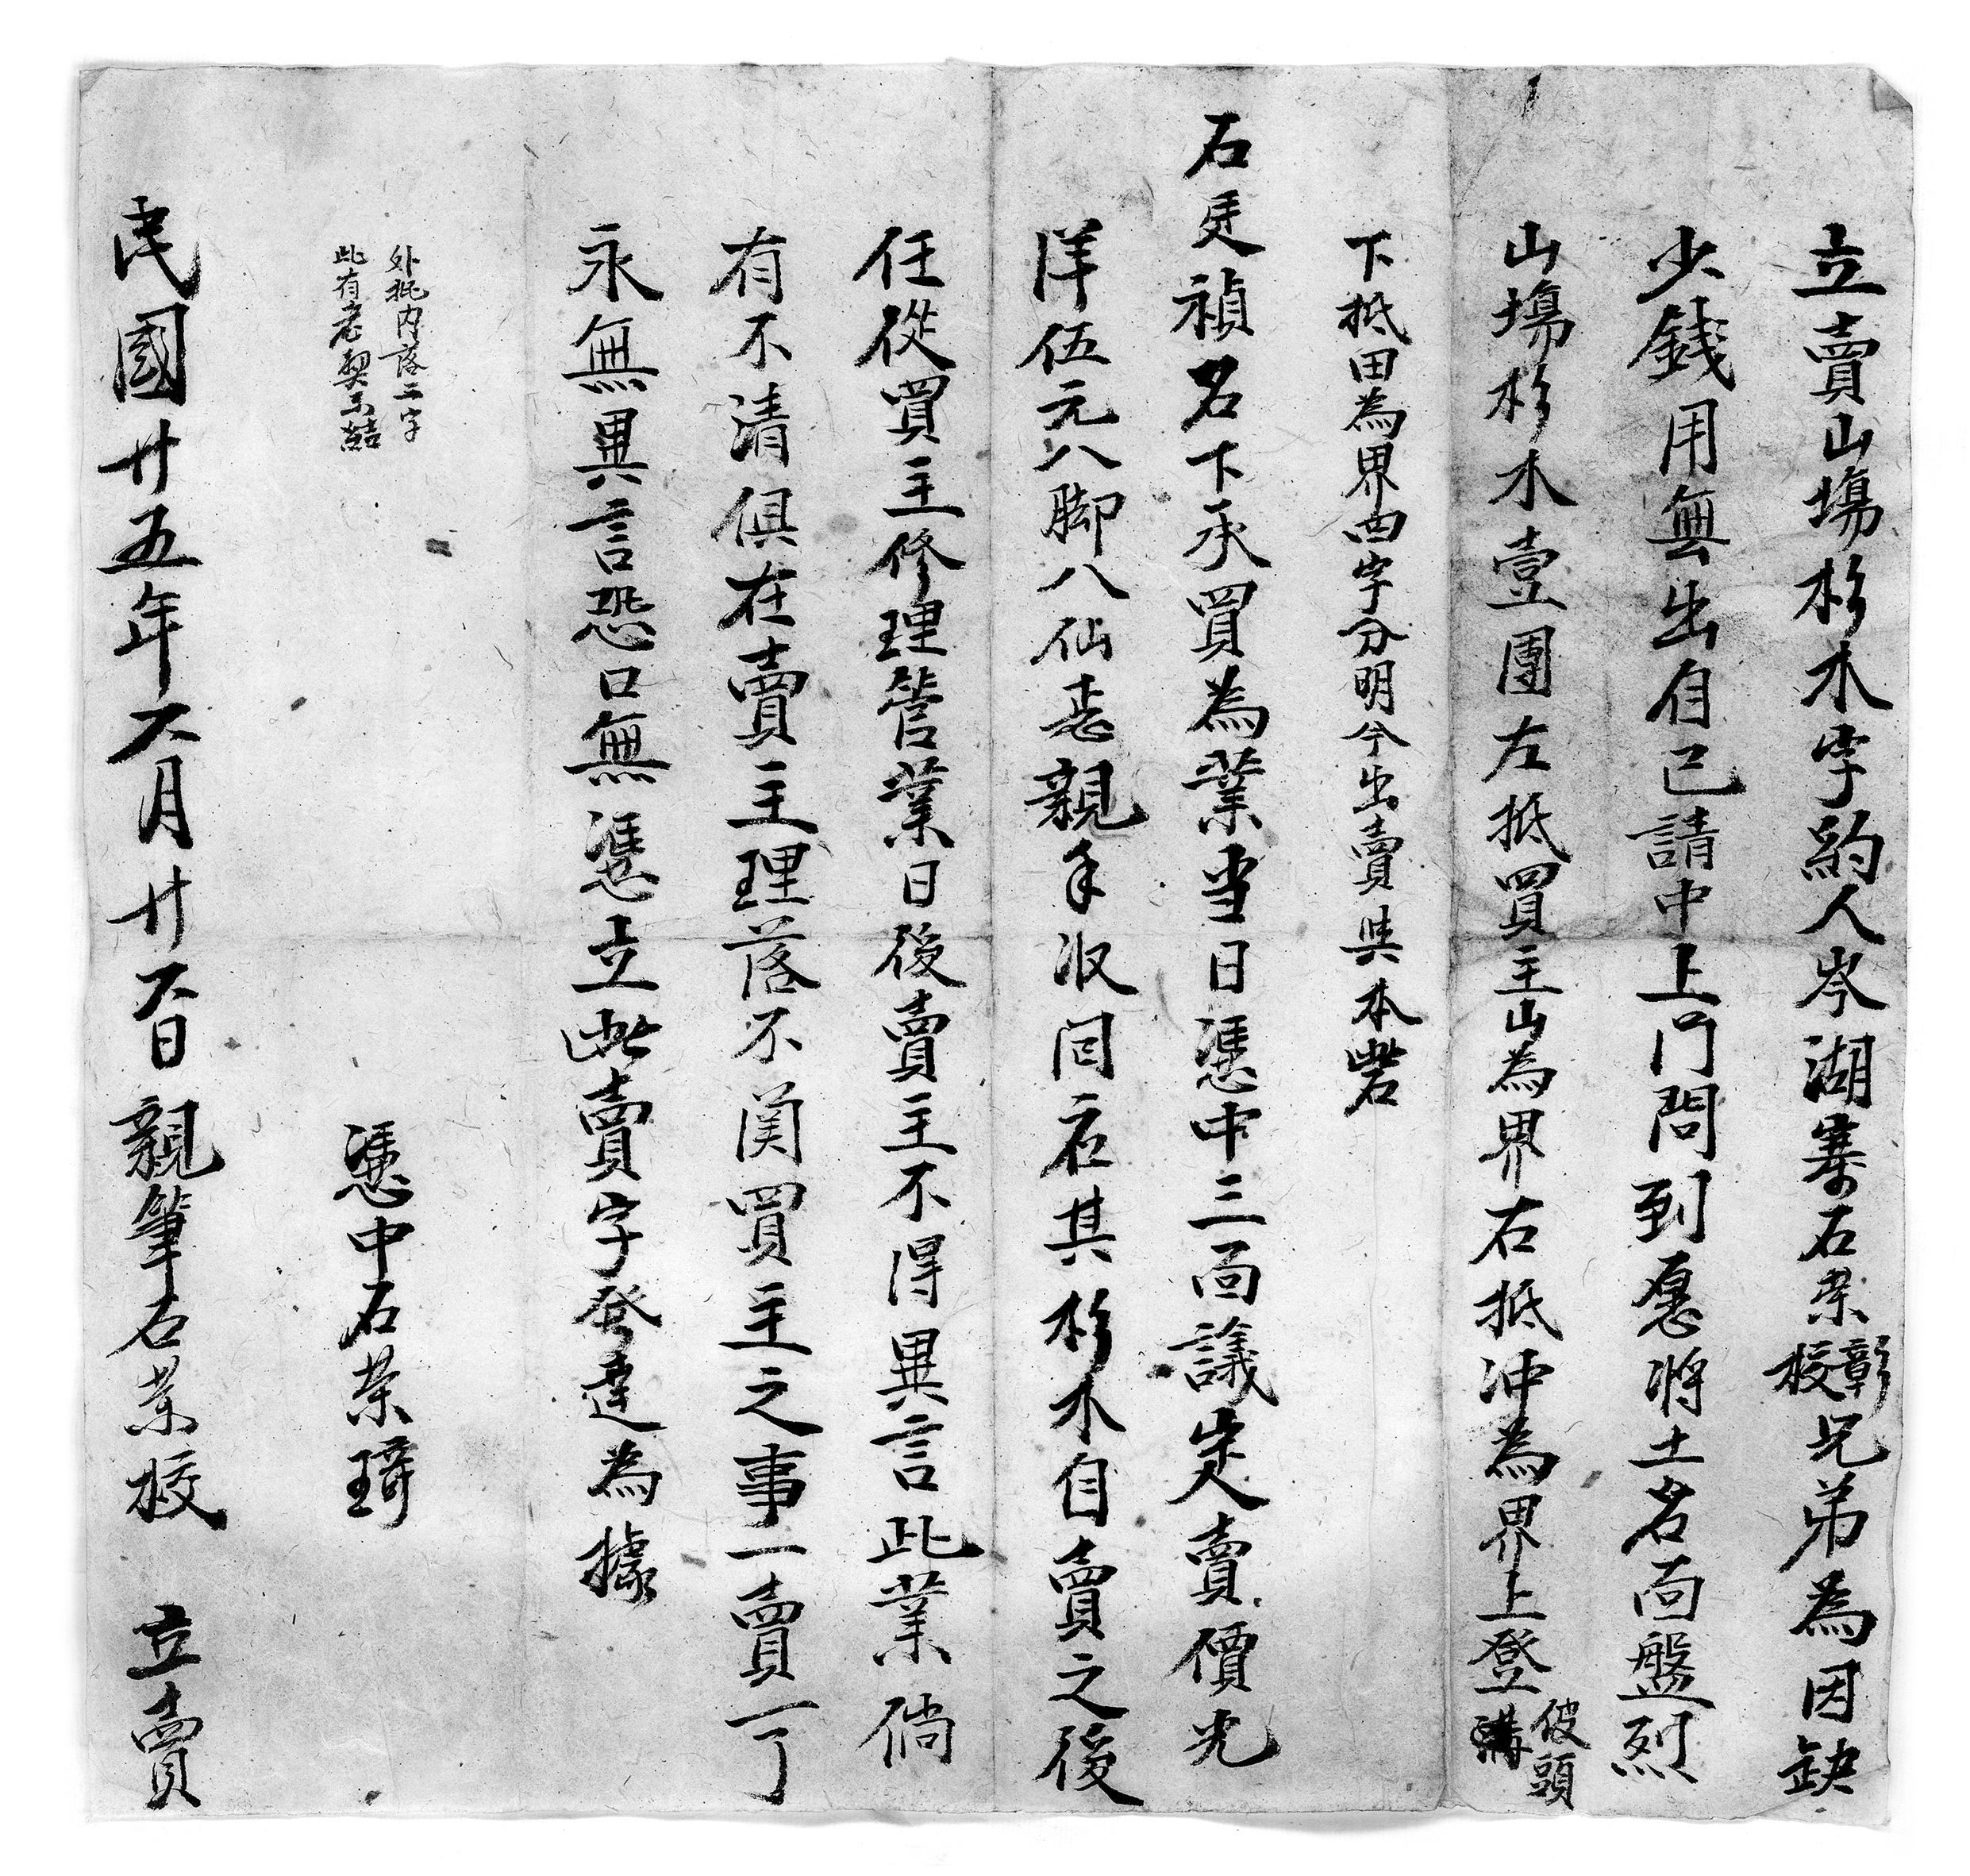 立賣山塲杉木字約人岑湖寨石荣彰校兄弟為因缺
少錢用無出自己請中上門問到愿將土名面盤烈
山塲杉木壹團左抵買主山為界右抵冲為界上登坡頭
下抵田為界四字分明今出賣與本岩
石廷禎名下承買為業当日憑中三面議定賣價光
洋伍元八脚八仙整親手收囘应其杉木自賣之後
任從買主修理管業日後賣主不得異言此業倘
有不清俱在賣主理落不関買主之事一賣一了
永無異言恐口無憑立此賣字發達為據
外批内落二字
此有老契未
憑中石荣琦
民國廿五年六月廿六日親筆石荣校 立賣